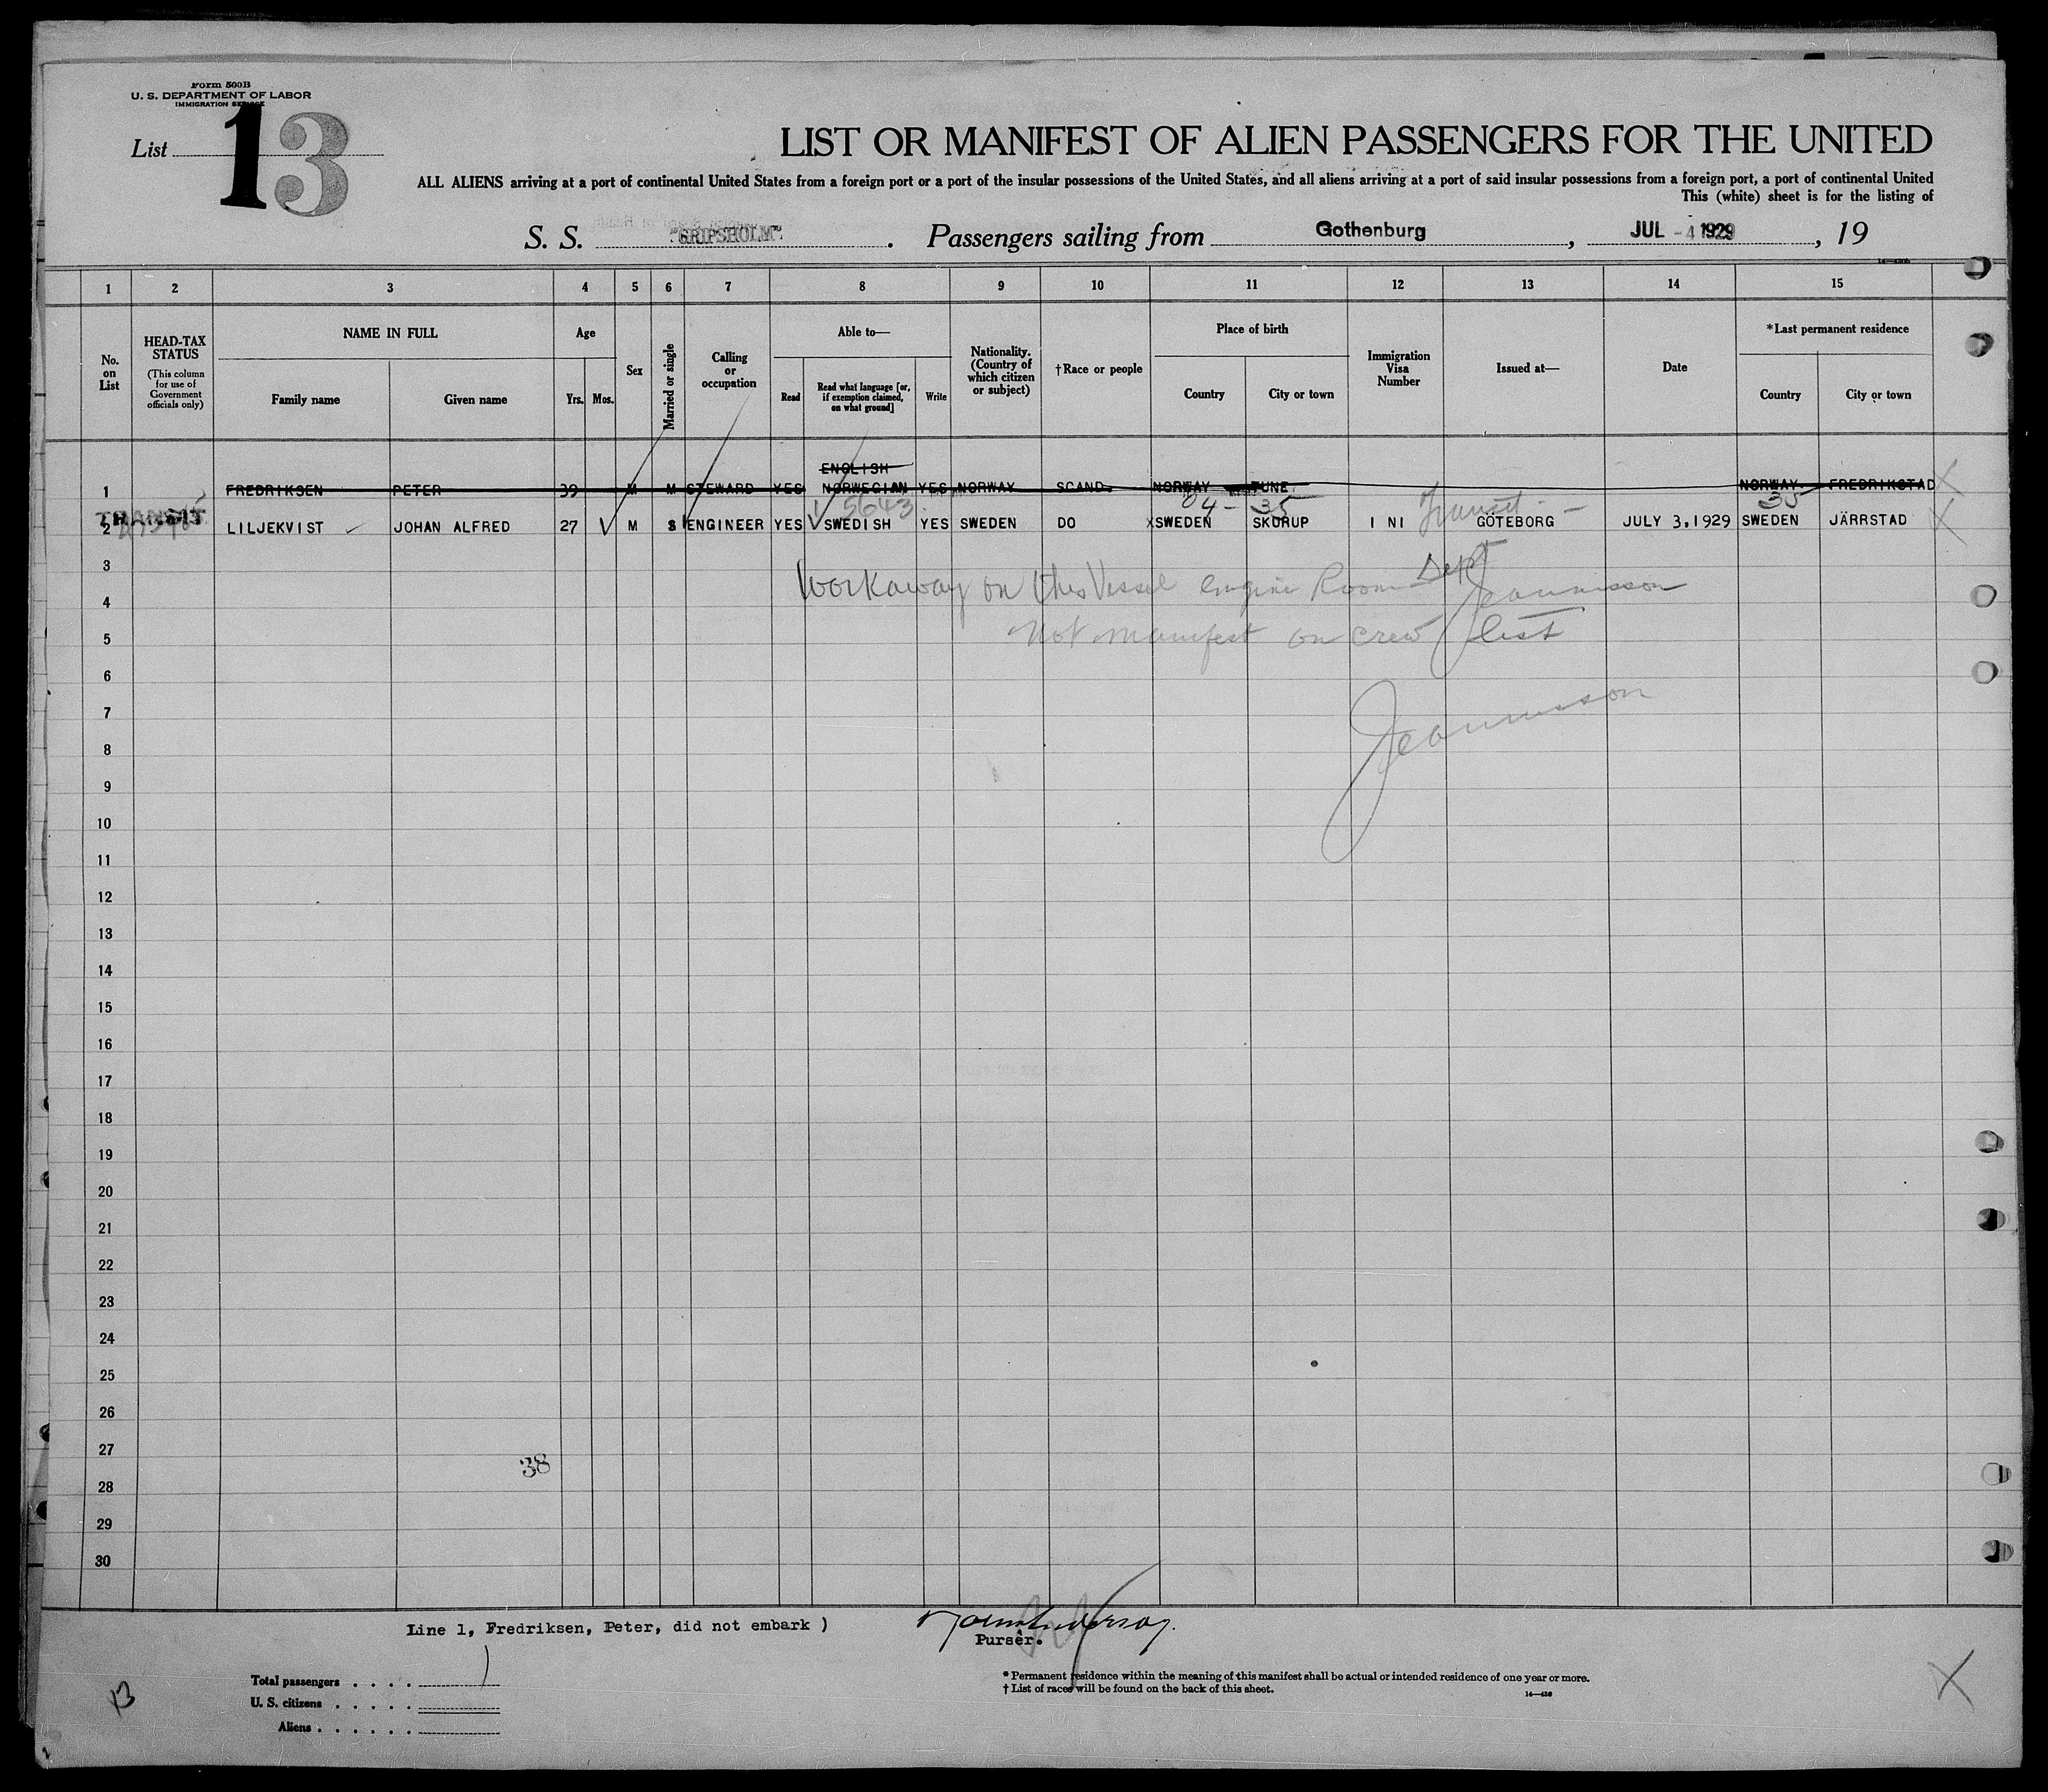 Form 500B
U. S. DEPARTMENT OF LABOR
IMMIGRATION SERVICE
List 13
LIST OR MANIFEST OF ALIEN PASSENGERS FOR THE UNITED
ALL ALIENS arriving at a port of continental United States from a foreign port or a port of the insular possessions of the United States, and all aliens arriving at a port of said insular possessions from a foreign port, a port of continental United
This (white) sheet is for the listing of
S. S. "GRIPSHOLM". Passengers sailing from Gothenburg, JUL -4 1929, 19
1 2 3 4 5 6 7 8 9 10 11 12 13 14 15
No. on List
HEAD-TAX STATUS
(This column for use of Government officials only)
NAME IN FULL
Family name
Given name
Age
Yrs.
Mos.
Sex
Married or single
Calling or occupation
Able to—
Read
Read what language [or, if exemption claimed, on what ground]
Write
Nationality. (Country of which citizen or subject)
†Race or people
Place of birth
Country
City or town
Immigration Visa Number
Issued at—
Date
*Last permanent residence
Country
City or town
ENGLISH
1 FREDRIKSEN PETER 39 M M STEWARD YES NORWEGIAN YES NORWAY SCAND. NORWAY TUNE. NORWAY. FREDRIKSTAD X
5643 04 - 35 Transit - 35
TRANSIT
2 LILJEKVIST JOHAN ALFRED 27 M S ENGINEER YES SWEDISH YES SWEDEN DO X SWEDEN SKURUP I NI GÖTEBORG JULY 3.1929 SWEDEN JÄRRSTAD X
3
Workaway on this Vessel engine Room Dept
4
Jeannisson
5
Not manifest on crew list
6
7
Jeannisson
8
9
10
11
12
13
14
15
16
17
18
19
20
21
22
23
24
25
26
27
38
28
29
30
Line 1, Fredriksen, Peter, did not embark )
Purser.
Total passengers . . . . 1
U. S. citizens . . . . .
Aliens . . . . . .
13
* Permanent residence within the meaning of this manifest shall be actual or intended residence of one year or more.
† List of races will be found on the back of this sheet.
X